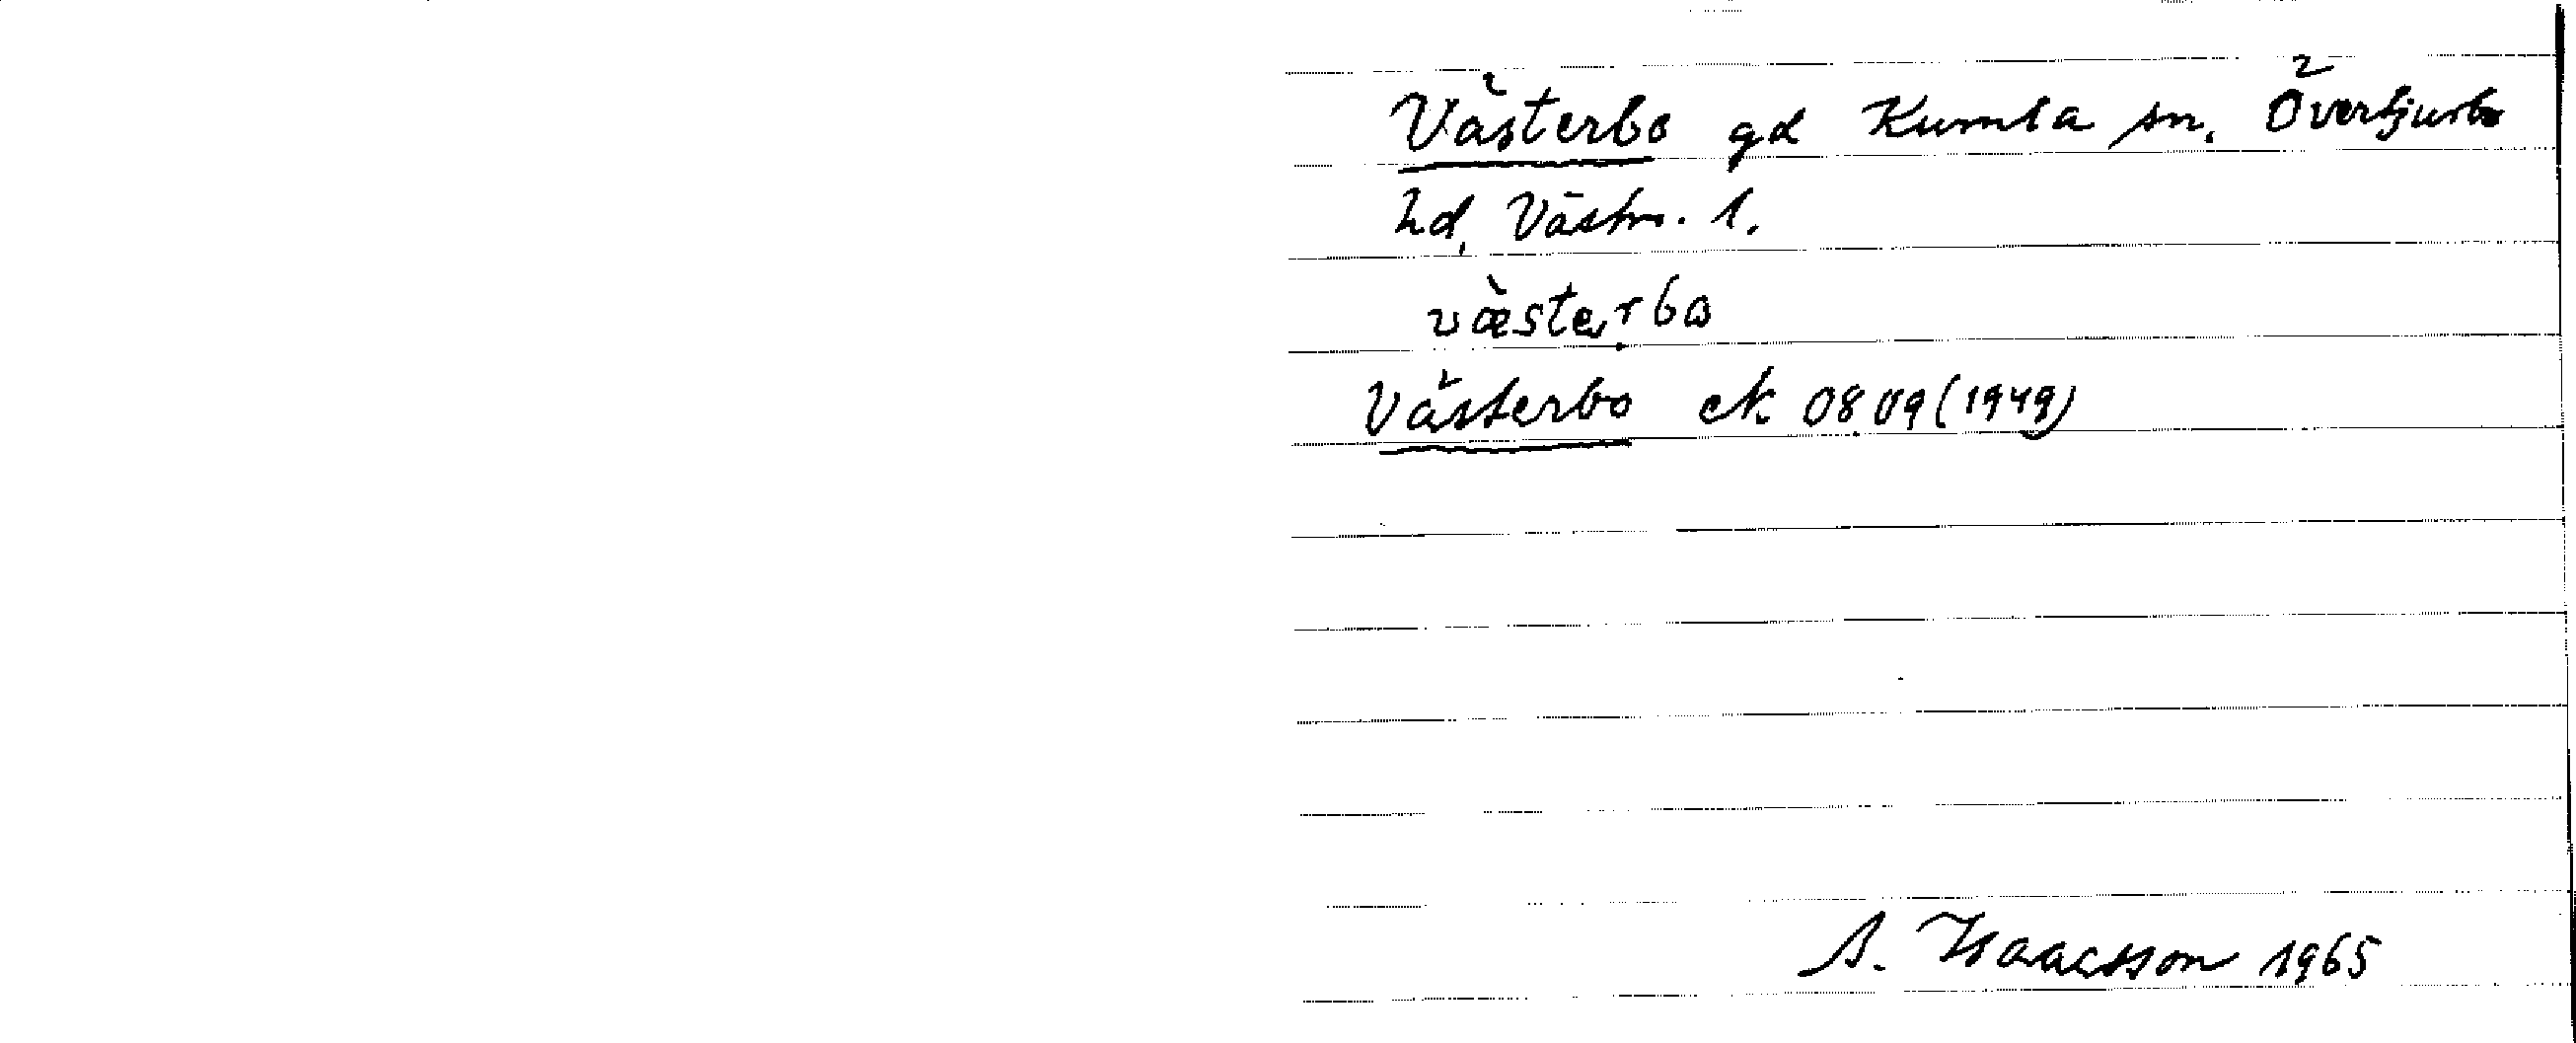 Västerbo gd Kumla sn. Övertjurbo
hd, Västm. l.
væ̀sterbo
Västerbo ek 08,09 (1949)
S. Isaacsson 1965